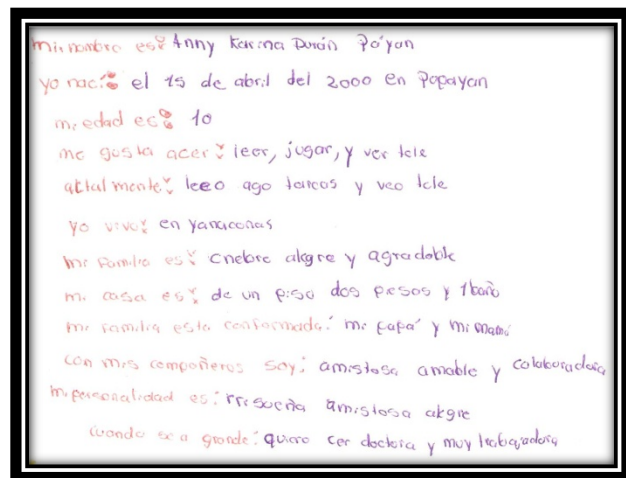 mi nombre es: Anny Karina Durán Pa'yan
yo naci: el 15 de abril del 2000 en Popayan
mi edad ec: 10
me gusta acer: leer, jugar, y ver tele
attalmente: leeo ago tareas y veo tele
yo vivo: en yanaconas
mi familia es: alegre y agradable
mi casa es: de un piso dos piesos y 1 baño
mi familia esta conformada: mi papa' y mi mamá
con mis compañeros soy: amistosa amable y colaboradora
mi personalidad es: rrisoeña amistosa alegre
cuando se a grande: quiero cer doctora y muy trabajadora